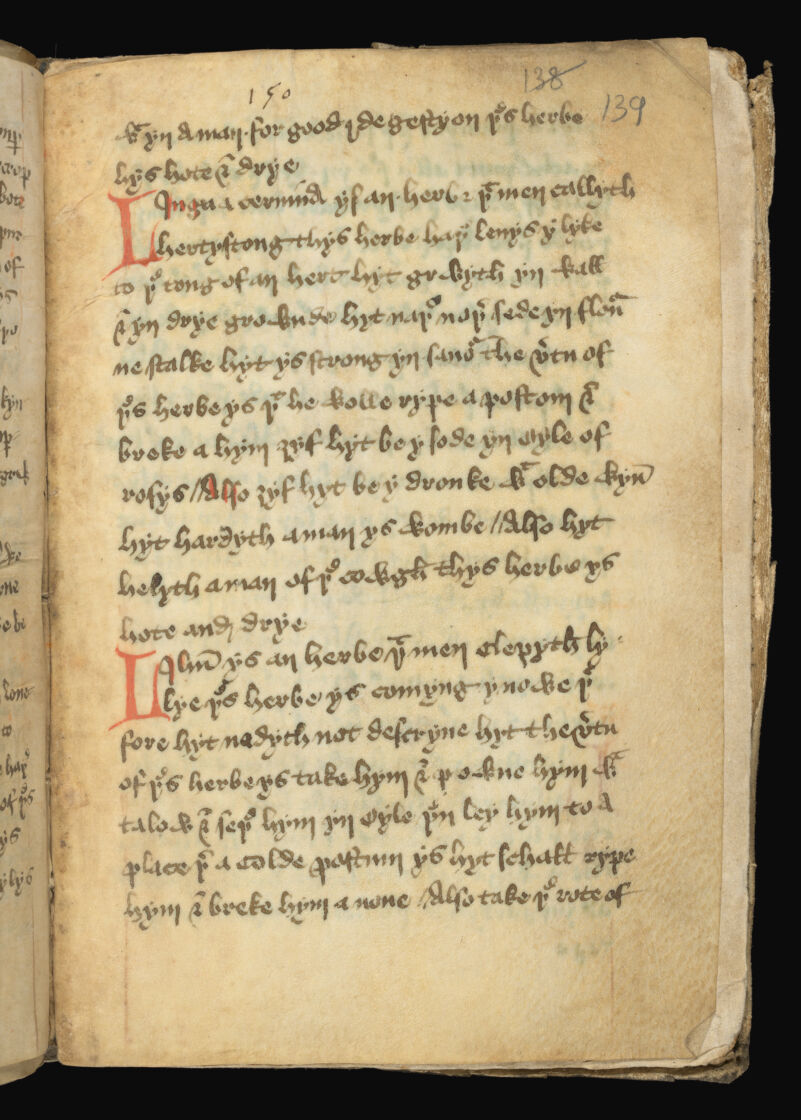 150
138
139
wᵗ yn a man for good ꝛ degestyon þᵉs herbe
hys hote & drye
Lingua cervina ys an herbe þᵗ men callyth
hertystong thys herbe haþ levys y lyke
to þᵉ tong of an hert hyt growyth yn wall
& yn drye grownde hyt naþ noþ sede yn flouꝛ
ne stalke hyt ys strong yn savoꝛ the vꝛtu of
þᵉs herbe ys þᵗ he wolle rype a postom &
breke a hym ȝyf hyt be y sode yn oyle of
rosys // Also ȝyf hyt be y dronke wᵗ olde wyn̄
hyt hardyth a man ys wombe // Also hyt
helyth a man of þᵉ cowgh thys herbe ys
hote and drye
Liliū ys an herbe þᵗ men clepyth ly
lye þᵉs herbe ys comyng y nowe þᵗ
fore hyt nedyth not descryve hyt the vꝛtu
of þᵉs herbe ys take hym & powne hym wᵗ
talow & seþ hym yn oyle þᵉn ley hym to a
place þᵗ a colde postum ys hyt schall rype
hym & breke hym a none // Also take þᵉ rote of